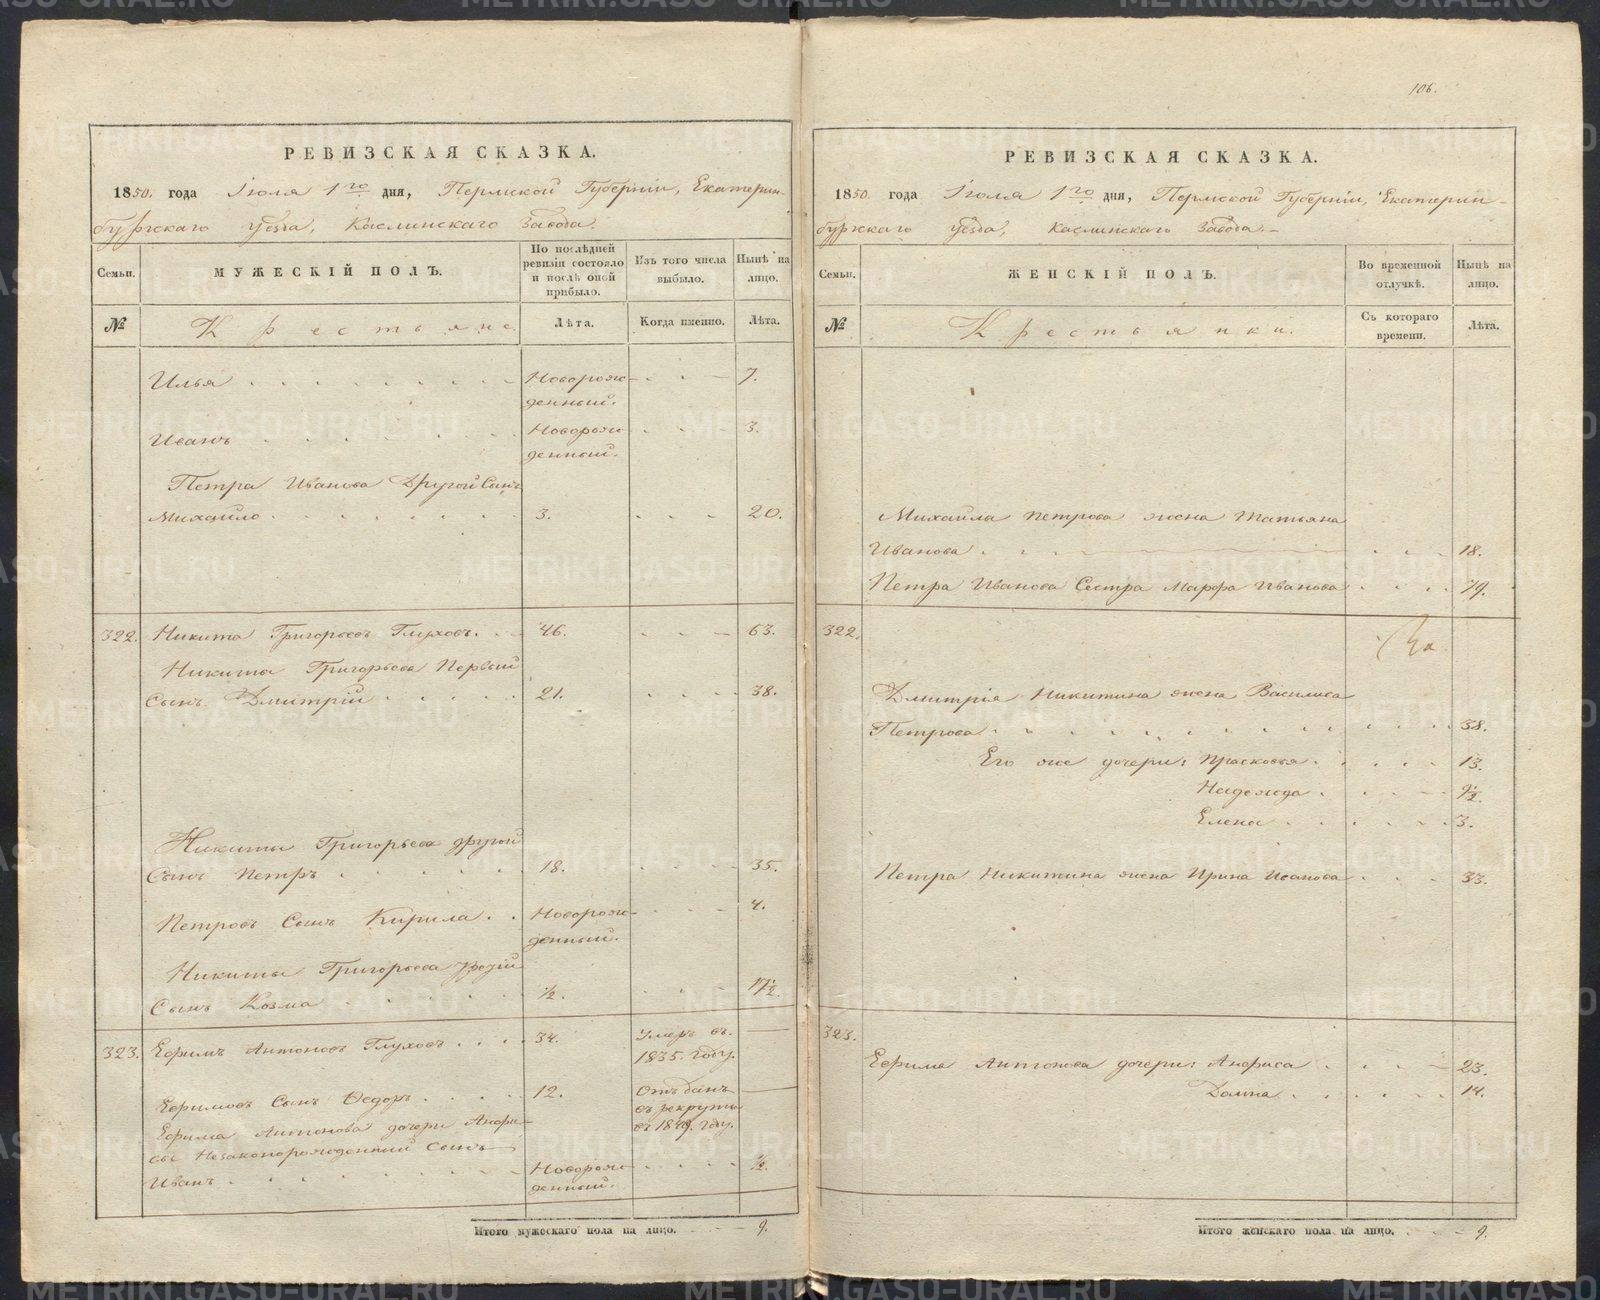 106.
РЕВИЗСКАЯ СКАЗКА.
1850. года Іюля 1го дня, Пермской Губерніи, Екатерин-
бургскаго уѣзда, Каслинскаго Завода.
Семьи.
МУЖЕСКІЙ ПОЛЪ.
По послѣдней ревизіи состояло и послѣ оной прибыло.
Изъ того числа выбыло.
Нынѣ на лицо.
№
Крестьяне
Лѣта.
Когда именно.
Лѣта.
Илья Новорож- 7.
денный.
Иванъ Новорож- 3.
денный.
Петра Иванова Другой Сынъ
Михайло 3. 20.
322. Никита Григорьевъ Глуховъ. 46. 63.
Никиты Григорьева Первый
Сынъ Дмитрій 21. 38.
Никиты Григорьева другой
Сынъ Петръ 18. 35.
Петровъ Сынъ Кирила Новорож- 4.
денный.
Никиты Григорьева третій
Сынъ Козма ½. 17½.
323. Ефимъ Антоновъ Глуховъ 34. Умеръ въ.
1835. году.
Ефимовъ Сынъ Ѳедоръ 12. Отъданъ
въ рекруты
въ 1849. году.
Ефима Антонова дочери Анфи-
сы Незаконорожденный Сынъ
Иванъ Новорож- ½.
денный.
Итого мужескаго пола на лицо. 9.
РЕВИЗСКАЯ СКАЗКА.
1850. года Іюля 1го дня, Пермской Губерніи, Екатерин-
бургскаго уѣзда, Каслинскаго Завода.
Семьи.
ЖЕНСКІЙ ПОЛЪ.
Во временной отлучкѣ.
Нынѣ на лицо.
№
Крестьянки.
Съ котораго времени.
Лѣта.
Михайла Петрова жена Татьяна
Иванова 18.
Петра Иванова Сестра Марфа Иванова 49.
322.
Дмитрія Никитина жена Василиса
Петрова 38.
Его же дочери: Прасковья 13.
Надежда 9½.
Елена 3.
Петра Никитина жена Ирина Иванова 33.
323.
Ефима Антонова дочери: Анфиса 23.
Домна 14.
Итого женскаго пола на лицо. 9.
METRIKI.GASO-URAL.RU